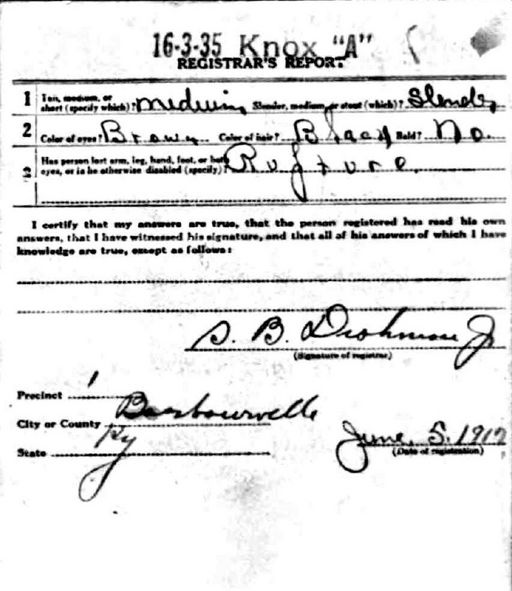 16-3-35 Knox "A"
REGISTRAR'S REPORT
1 Tall, medium, or short (specify which)? medium Slender, medium, or stout (which)? Slender
2 Color of eyes? Brown Color of hair? Black Bald? No
3 Has person lost arm, leg, hand, foot, or both eyes, or is he otherwise disabled (specify)? Rupture
I certify that my answers are true, that the person registered has read his own
answers, that I have witnessed his signature, and that all of his answers of which I have
knowledge are true, except as follows:
S. B. Dishman Jr
(Signature of registrar)
Precinct 1
City or County Barbourville
State Ky
June, 5. 1917
(Date of registration)